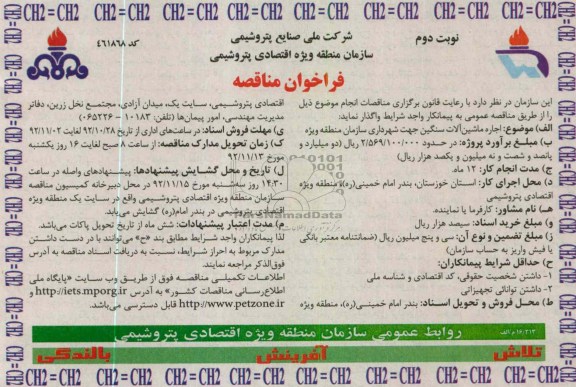 CH2 = CH2 CH2 = CH2 CH2 = CH2 CH2 = CH2 CH2 = CH2 CH2 = CH2 CH2 = CH2
نوبت دوم
شرکت ملی صنایع پتروشیمی
سازمان منطقه ویژه اقتصادی پتروشیمی
کد ۴۶۱۸۶۸
فراخوان مناقصه
این سازمان در نظر دارد با رعایت قانون برگزاری مناقصات انجام موضوع ذیل
را از طریق مناقصه عمومی به پیمانکار واجد شرایط واگذار نماید:
الف) موضوع: اجاره ماشین آلات سنگین جهت شهرداری سازمان منطقه ویژه
ب) مبلغ برآورد پروژه: در حدود ۲/۵۶۹/۱۰۰/۰۰۰ ریال (دو میلیارد و
پانصد و شصت و نه میلیون و یکصد هزار ریال)
ج) مدت انجام کار: ۱۲ ماه.
د) محل اجرای کار: استان خوزستان، بندر امام خمینی(ره)، منطقه ویژه
اقتصادی پتروشیمی
هـ) نام مشاور: کارفرما یا نماینده
و) مبلغ خرید اسناد: سیصد هزار ریال
ز) مبلغ تضمین و نوع آن: سی و پنج میلیون ریال (ضمانتنامه معتبر بانکی
یا فیش واریز به حساب سازمان)
ح) حداقل شرایط پیمانکاران:
۱- داشتن شخصیت حقوقی، کد اقتصادی و شناسه ملی
۲- داشتن توانائی تجهیزاتی
ط) محل فروش و تحویل اسناد: بندر امام خمینی(ره)، منطقه ویژه
اقتصادی پتروشیمی، سایت یک، میدان آزادی، مجتمع نخل زرین، دفاتر
مدیریت مهندسی، امور پیمان‌ها (تلفن: ۱۰۱۸۳ - ۰۶۵۲۲۶)
ی) مهلت فروش اسناد: در ساعت‌های اداری از تاریخ ۹۲/۱۰/۲۸ لغایت ۹۲/۱۱/۰۲
ک) زمان تحویل مدارک مناقصه: از ساعت ۸ صبح لغایت ۱۶ روز یکشنبه
مورخ ۹۲/۱۱/۱۳
ل) تاریخ و محل گشایش پیشنهادها: پیشنهادهای واصله در ساعت
۱۴:۳۰ روز سه‌شنبه مورخ ۹۲/۱۱/۱۵ در محل دبیرخانه کمیسیون مناقصه
سازمان منطقه ویژه اقتصادی پتروشیمی واقع در سایت یک منطقه ویژه
اقتصادی پتروشیمی در بندر امام(ره) گشایش می‌یابد.
م) مدت اعتبار پیشنهادات: شش ماه از تاریخ تحویل پاکات می‌باشد.
لذا پیمانکاران واجد شرایط مطابق بند «ح» می‌توانند با در دست داشتن
مدارک مربوط به احراز شرایط، نسبت به دریافت اسناد مناقصه به آدرس
فوق‌الذکر مراجعه نمایند.
اطلاعات تکمیلی مناقصه فوق از طریق وب سایت «پایگاه ملی
اطلاع‌رسانی مناقصات کشور» به آدرس http://iets.mporg.ir و
http://www.petzone.ir قابل دسترسی می‌باشد.
روابط عمومی سازمان منطقه ویژه اقتصادی پتروشیمی
تلاش آفرینش بالندگی
CH2 = CH2 CH2 = CH2 CH2 = CH2 CH2 = CH2 CH2 = CH2 CH2 = CH2 CH2 = CH2